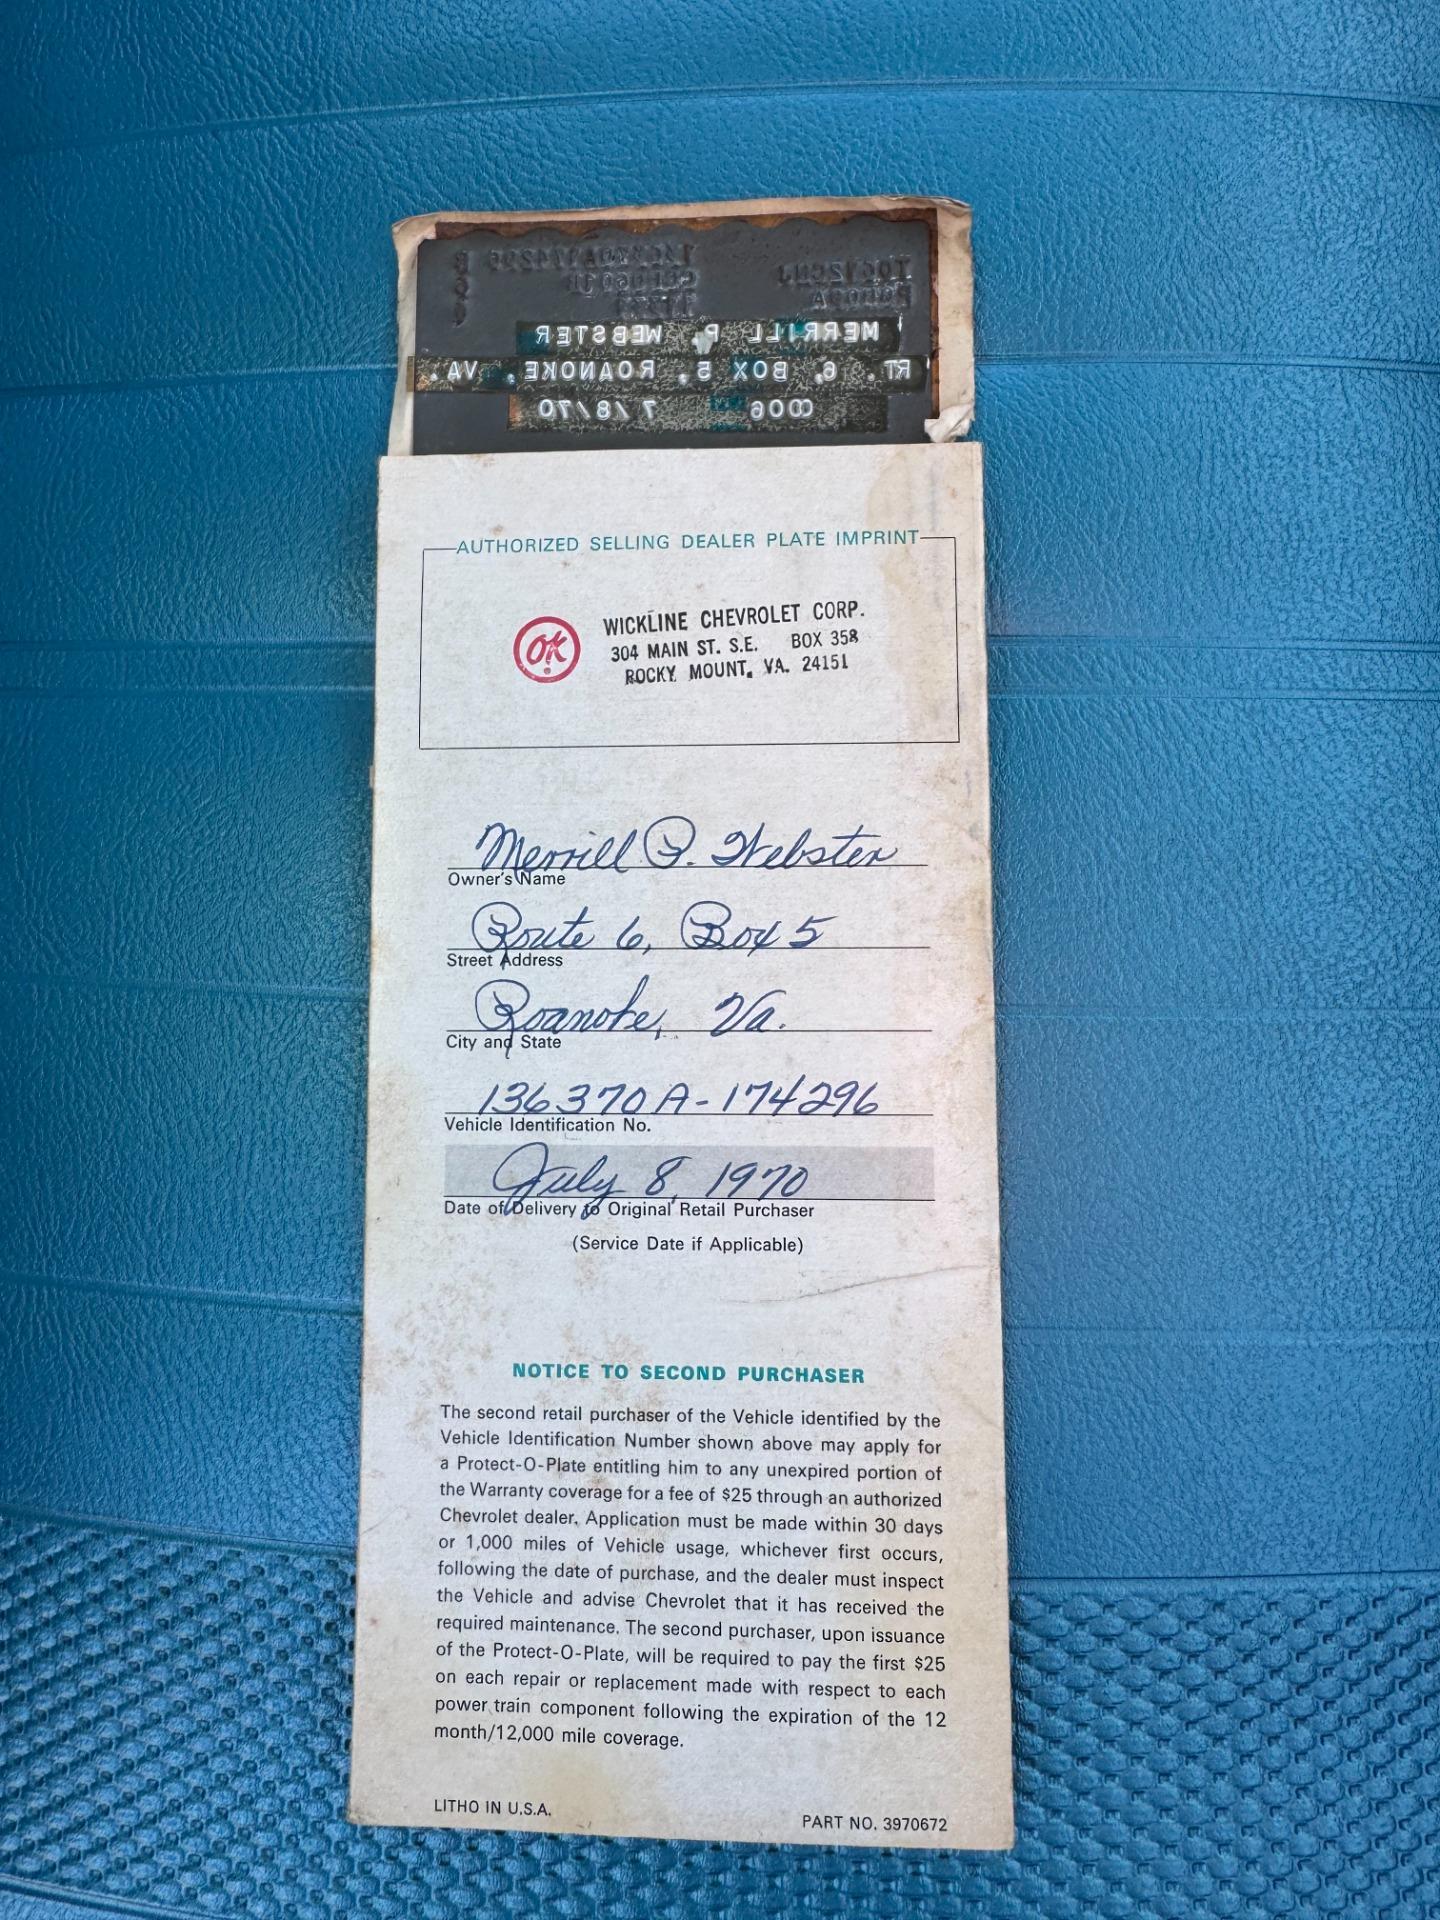 MERRILL P. WEBSTER
RT. 6, BOX 5, ROANOKE, VA.
0006 7/8/70
AUTHORIZED SELLING DEALER PLATE IMPRINT
OK
WICKLINE CHEVROLET CORP.
304 MAIN ST. S.E. BOX 358
ROCKY MOUNT, VA. 24151
Merrill P. Webster
Owner's Name
Route 6, Box 5
Street Address
Roanoke, Va.
City and State
136370A-174296
Vehicle Identification No.
July 8, 1970
Date of Delivery to Original Retail Purchaser
(Service Date if Applicable)
NOTICE TO SECOND PURCHASER
The second retail purchaser of the Vehicle identified by the
Vehicle Identification Number shown above may apply for
a Protect-O-Plate entitling him to any unexpired portion of
the Warranty coverage for a fee of $25 through an authorized
Chevrolet dealer. Application must be made within 30 days
or 1,000 miles of Vehicle usage, whichever first occurs,
following the date of purchase, and the dealer must inspect
the Vehicle and advise Chevrolet that it has received the
required maintenance. The second purchaser, upon issuance
of the Protect-O-Plate, will be required to pay the first $25
on each repair or replacement made with respect to each
power train component following the expiration of the 12
month/12,000 mile coverage.
LITHO IN U.S.A.
PART NO. 3970672